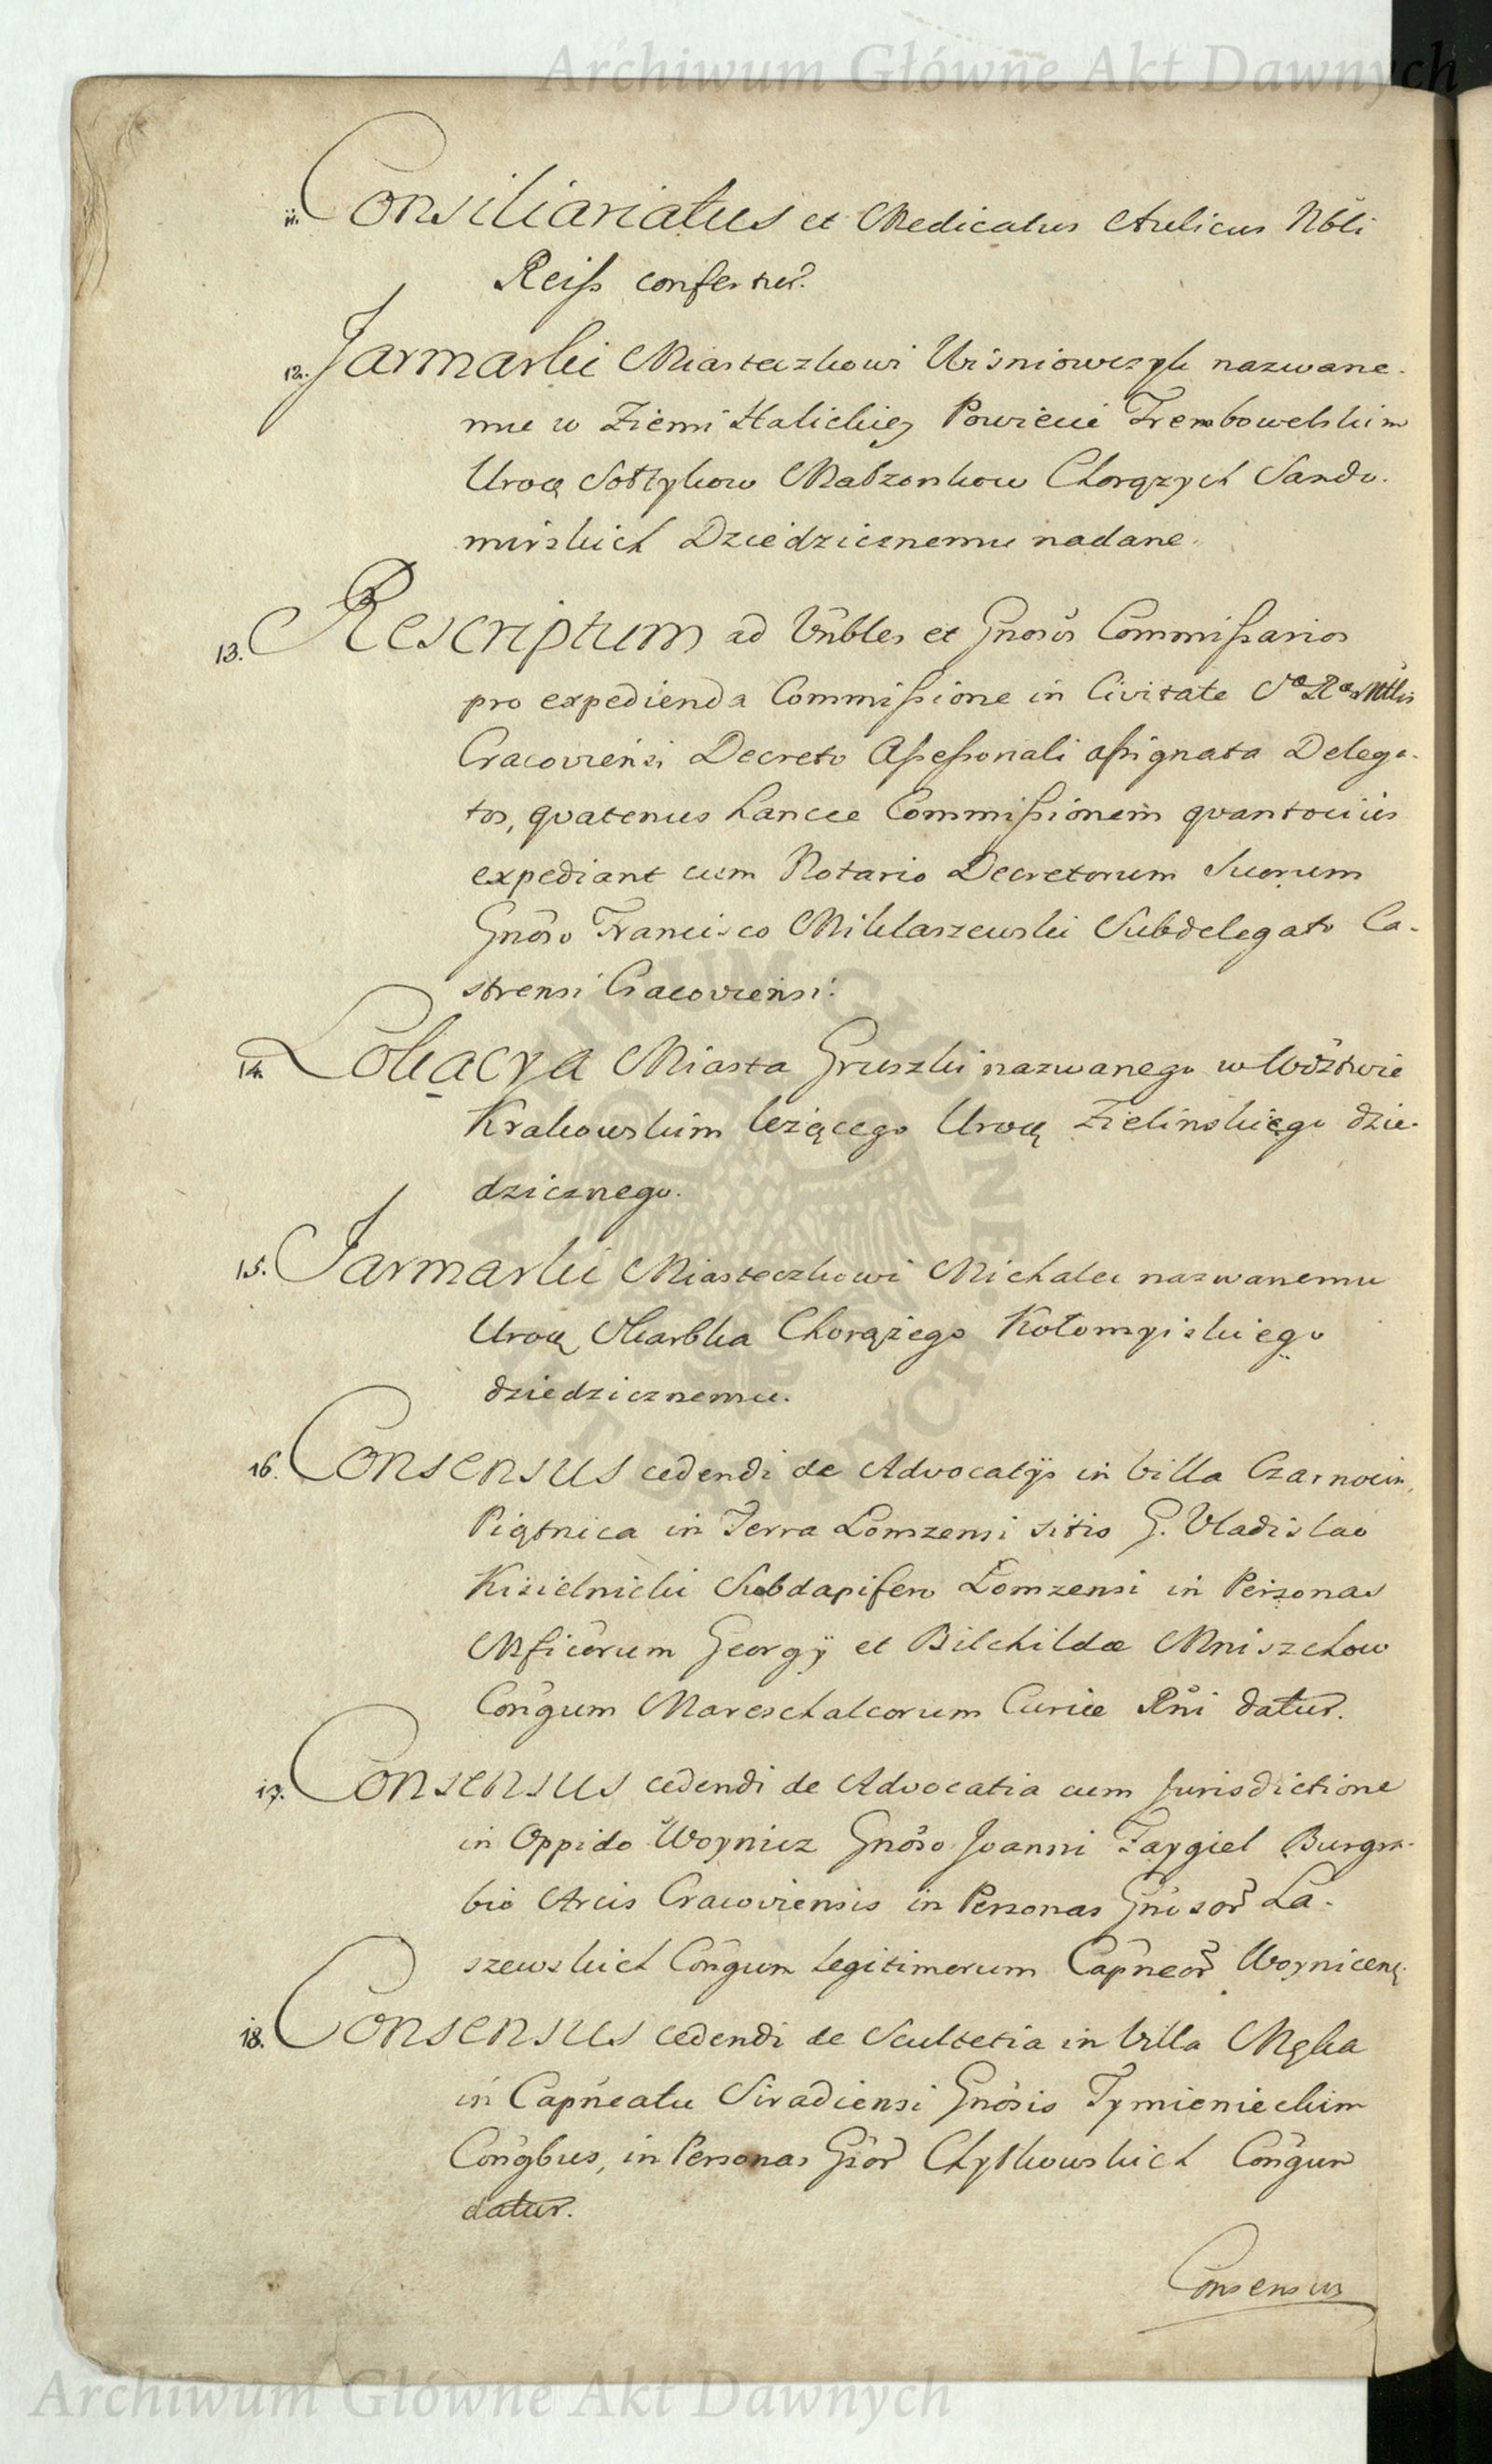 Archiwum Główne Akt Dawnych
11. Consiliariatus et Medicatus Aulicus Nbli
Reiss confertur.
12. Jarmarki Miasteczkowi Wisniowczyk nazwane-
mu w Ziemi Halickiey Powiecie Trembowelskim
Uroą Sołtykow Małzonkow Chorązych Sando-
mirskich Dziedzicznemu nadane.
13. Rescriptum ad Vnbles et Gnosos Commissarios
pro expedienda Commissione in Civitate Sa Ra Mttis
Cracoviensi Decreto Assessoriali assignata Delega-
tos, quatenus hancce Commissionem quantocius
expediant cum Notario Decretorum Suorum
Gnoso Francisco Miklaszewski Subdelegato Ca-
strensi Cracoviensi.
14. Lokacya Miasta Gruszki nazwanego w Wdztwie
Krakowskim lezącego Uroą Zielinskiego dzie-
dzicznego.
15. Jarmarki Miasteczkowi Michalcz nazwanemu
Uroą Skarbka Chorążego Kołomyiskiego
dziedzicznemu.
16. Consensus cedendi de Advocatijs in Villa Czarnocin,
Piątnica in Terra Lomzensi sitis G. Vladislao
Kisielnicki Subdapifero Lomzensi in Personas
Mficorum Georgij et Bilchildæ Mniszchow
Congum Mareschalcorum Curiæ Rni datur.
17. Consensus cedendi de Advocatia cum Jurisdictione
in Oppido Woynicz Gnoso Joanni Faygiel Burgra-
bio Arcis Cracoviensis in Personas Gnosor La-
szewskich Congum legitimorum Capneor Woynicen.
18. Consensus cedendi de Scultetia in Villa Męka
in Capneatu Siradiensi Gnosis Tymienieckim
Congbus, in Personas Gsor Chylkowskich Congum
datur.
Consensus
Archiwum Główne Akt Dawnych